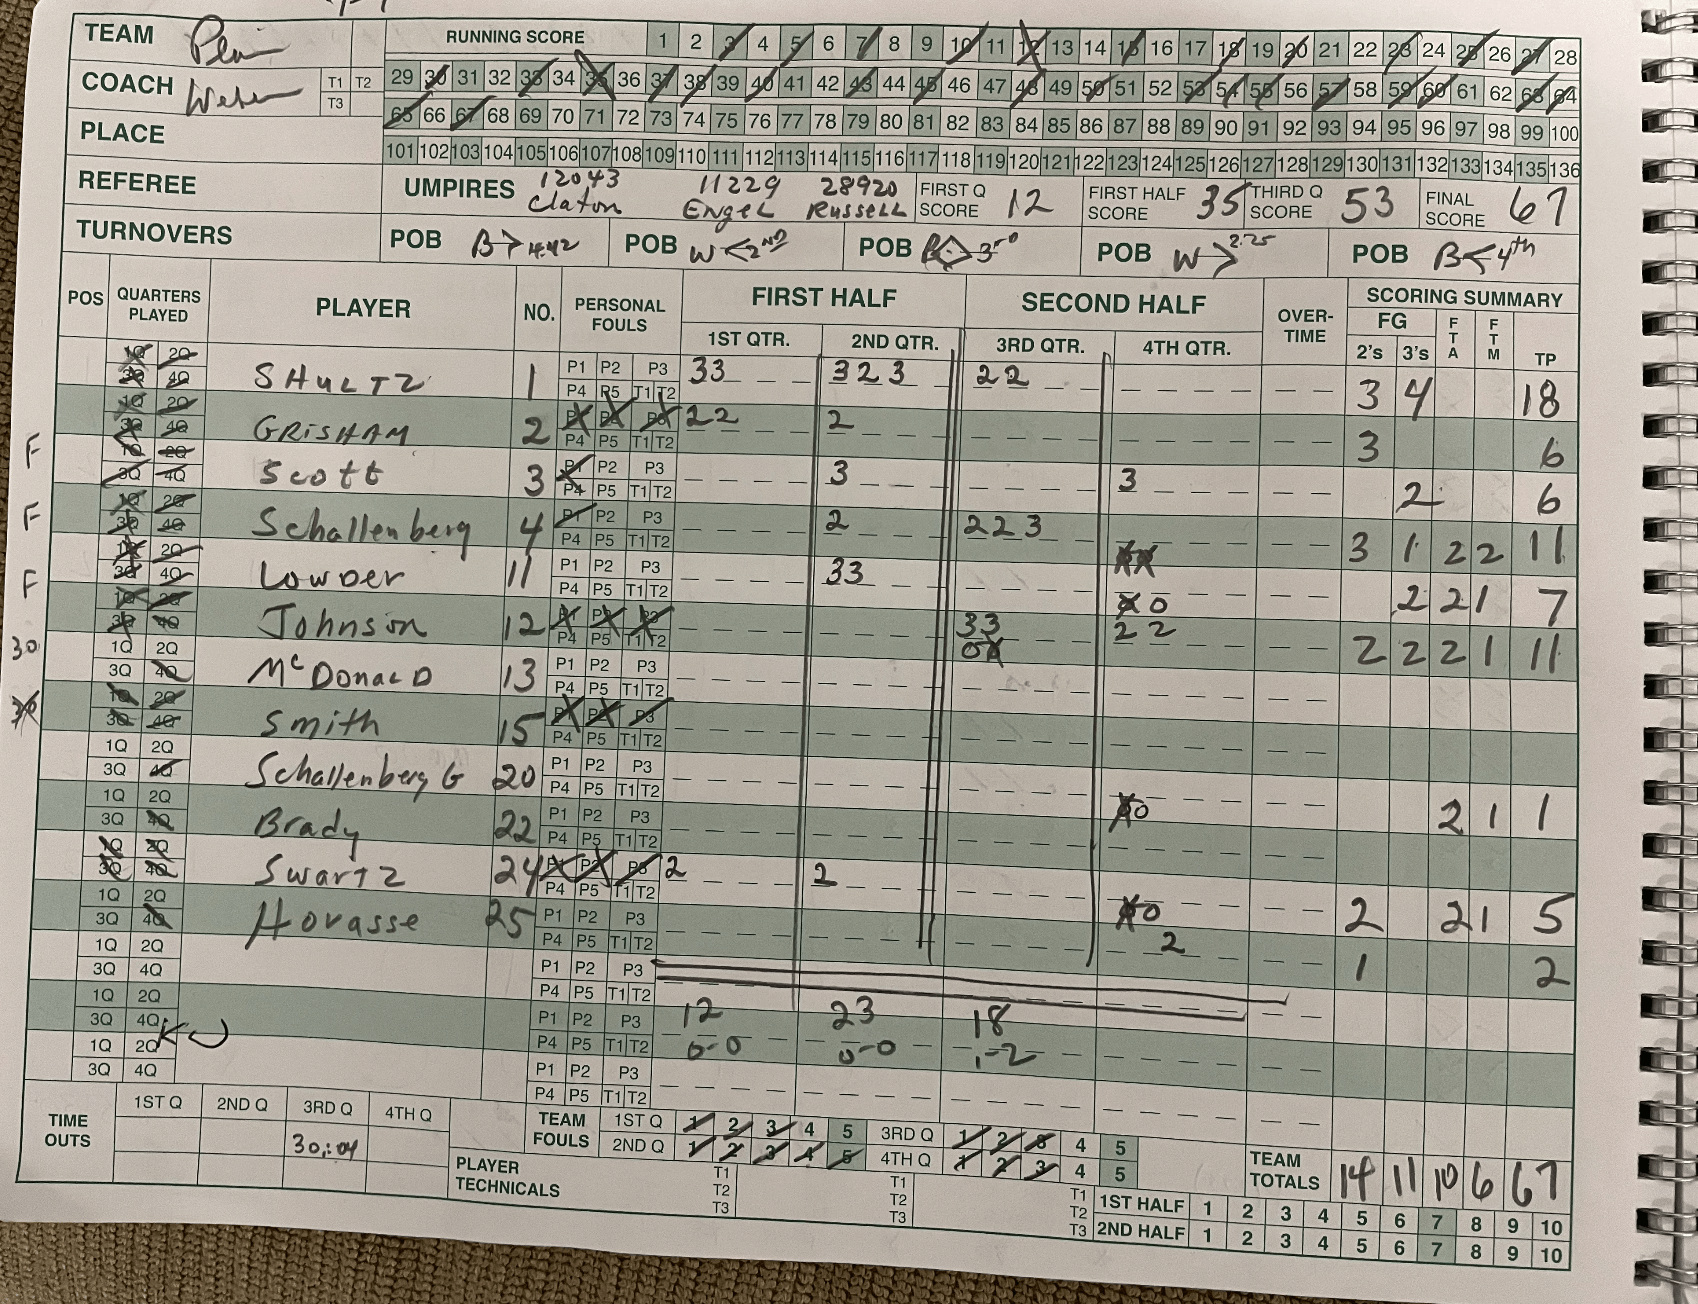 TEAM Plain RUNNING SCORE 1 2 3 4 5 6 7 8 9 10 11 12 13 14 15 16 17 18 19 20 21 22 23 24 25 26 27 28
COACH Weber T1 T2 T3 29 30 31 32 33 34 35 36 37 38 39 40 41 42 43 44 45 46 47 48 49 50 51 52 53 54 55 56 57 58 59 60 61 62 63 64
65 66 67 68 69 70 71 72 73 74 75 76 77 78 79 80 81 82 83 84 85 86 87 88 89 90 91 92 93 94 95 96 97 98 99 100
PLACE
101 102 103 104 105 106 107 108 109 110 111 112 113 114 115 116 117 118 119 120 121 122 123 124 125 126 127 128 129 130 131 132 133 134 135 136
REFEREE UMPIRES 12043 Claton 11229 Engel 28920 Russell FIRST Q SCORE 12 FIRST HALF SCORE 35 THIRD Q SCORE 53 FINAL SCORE 67
TURNOVERS POB B > 4:42 POB W < 2ND POB 3rd POB W > 2:25 POB B < 4th
POS QUARTERS PLAYED PLAYER NO. PERSONAL FOULS FIRST HALF SECOND HALF OVER-TIME SCORING SUMMARY
1ST QTR. 2ND QTR. 3RD QTR. 4TH QTR. FG 2's 3's FTA FTM TP
1Q 2Q 3Q 4Q SHULTZ 1 P1 P2 P3 P4 P5 T1 T2 33 323 22 3 4 18
1Q 2Q 3Q 4Q GRISHAM 2 P1 P2 P3 P4 P5 T1 T2 22 2 3 6
F 1Q 2Q 3Q 4Q Scott 3 P1 P2 P3 P4 P5 T1 T2 3 3 2 6
F 1Q 2Q 3Q 4Q Schallenberg 4 P1 P2 P3 P4 P5 T1 T2 2 223 3 1 2 2 11
F 1Q 2Q 3Q 4Q Lowder 11 P1 P2 P3 P4 P5 T1 T2 33 0 2 2 1 7
1Q 2Q 3Q 4Q Johnson 12 P1 P2 P3 P4 P5 T1 T2 33 22 2 2 2 1 11
30 1Q 2Q 3Q 4Q McDonald 13 P1 P2 P3 P4 P5 T1 T2
30 1Q 2Q 3Q 4Q Smith 15 P1 P2 P3 P4 P5 T1 T2
1Q 2Q 3Q 4Q Schallenberg G 20 P1 P2 P3 P4 P5 T1 T2 0 2 1 1
1Q 2Q 3Q 4Q Brady 22 P1 P2 P3 P4 P5 T1 T2
1Q 2Q 3Q 4Q Swartz 24 P1 P2 P3 P4 P5 T1 T2 2 2 0 2 2 1 5
1Q 2Q 3Q 4Q Horasse 25 P1 P2 P3 P4 P5 T1 T2 2 1 2
1Q 2Q 3Q 4Q P1 P2 P3 P4 P5 T1 T2
1Q 2Q 3Q 4Q P1 P2 P3 P4 P5 T1 T2 12 23 18
0-0 0-0 1-2
1Q 2Q 3Q 4Q P1 P2 P3 P4 P5 T1 T2
TIME OUTS 1ST Q 2ND Q 3RD Q 4TH Q TEAM FOULS 1ST Q 1 2 3 4 5 3RD Q 1 2 3 4 5
30:04 2ND Q 1 2 3 4 5 4TH Q 1 2 3 4 5 TEAM TOTALS 14 11 10 6 67
PLAYER TECHNICALS T1 T2 T3 T1 T2 T3 T1 T2 T3 1ST HALF 1 2 3 4 5 6 7 8 9 10
2ND HALF 1 2 3 4 5 6 7 8 9 10